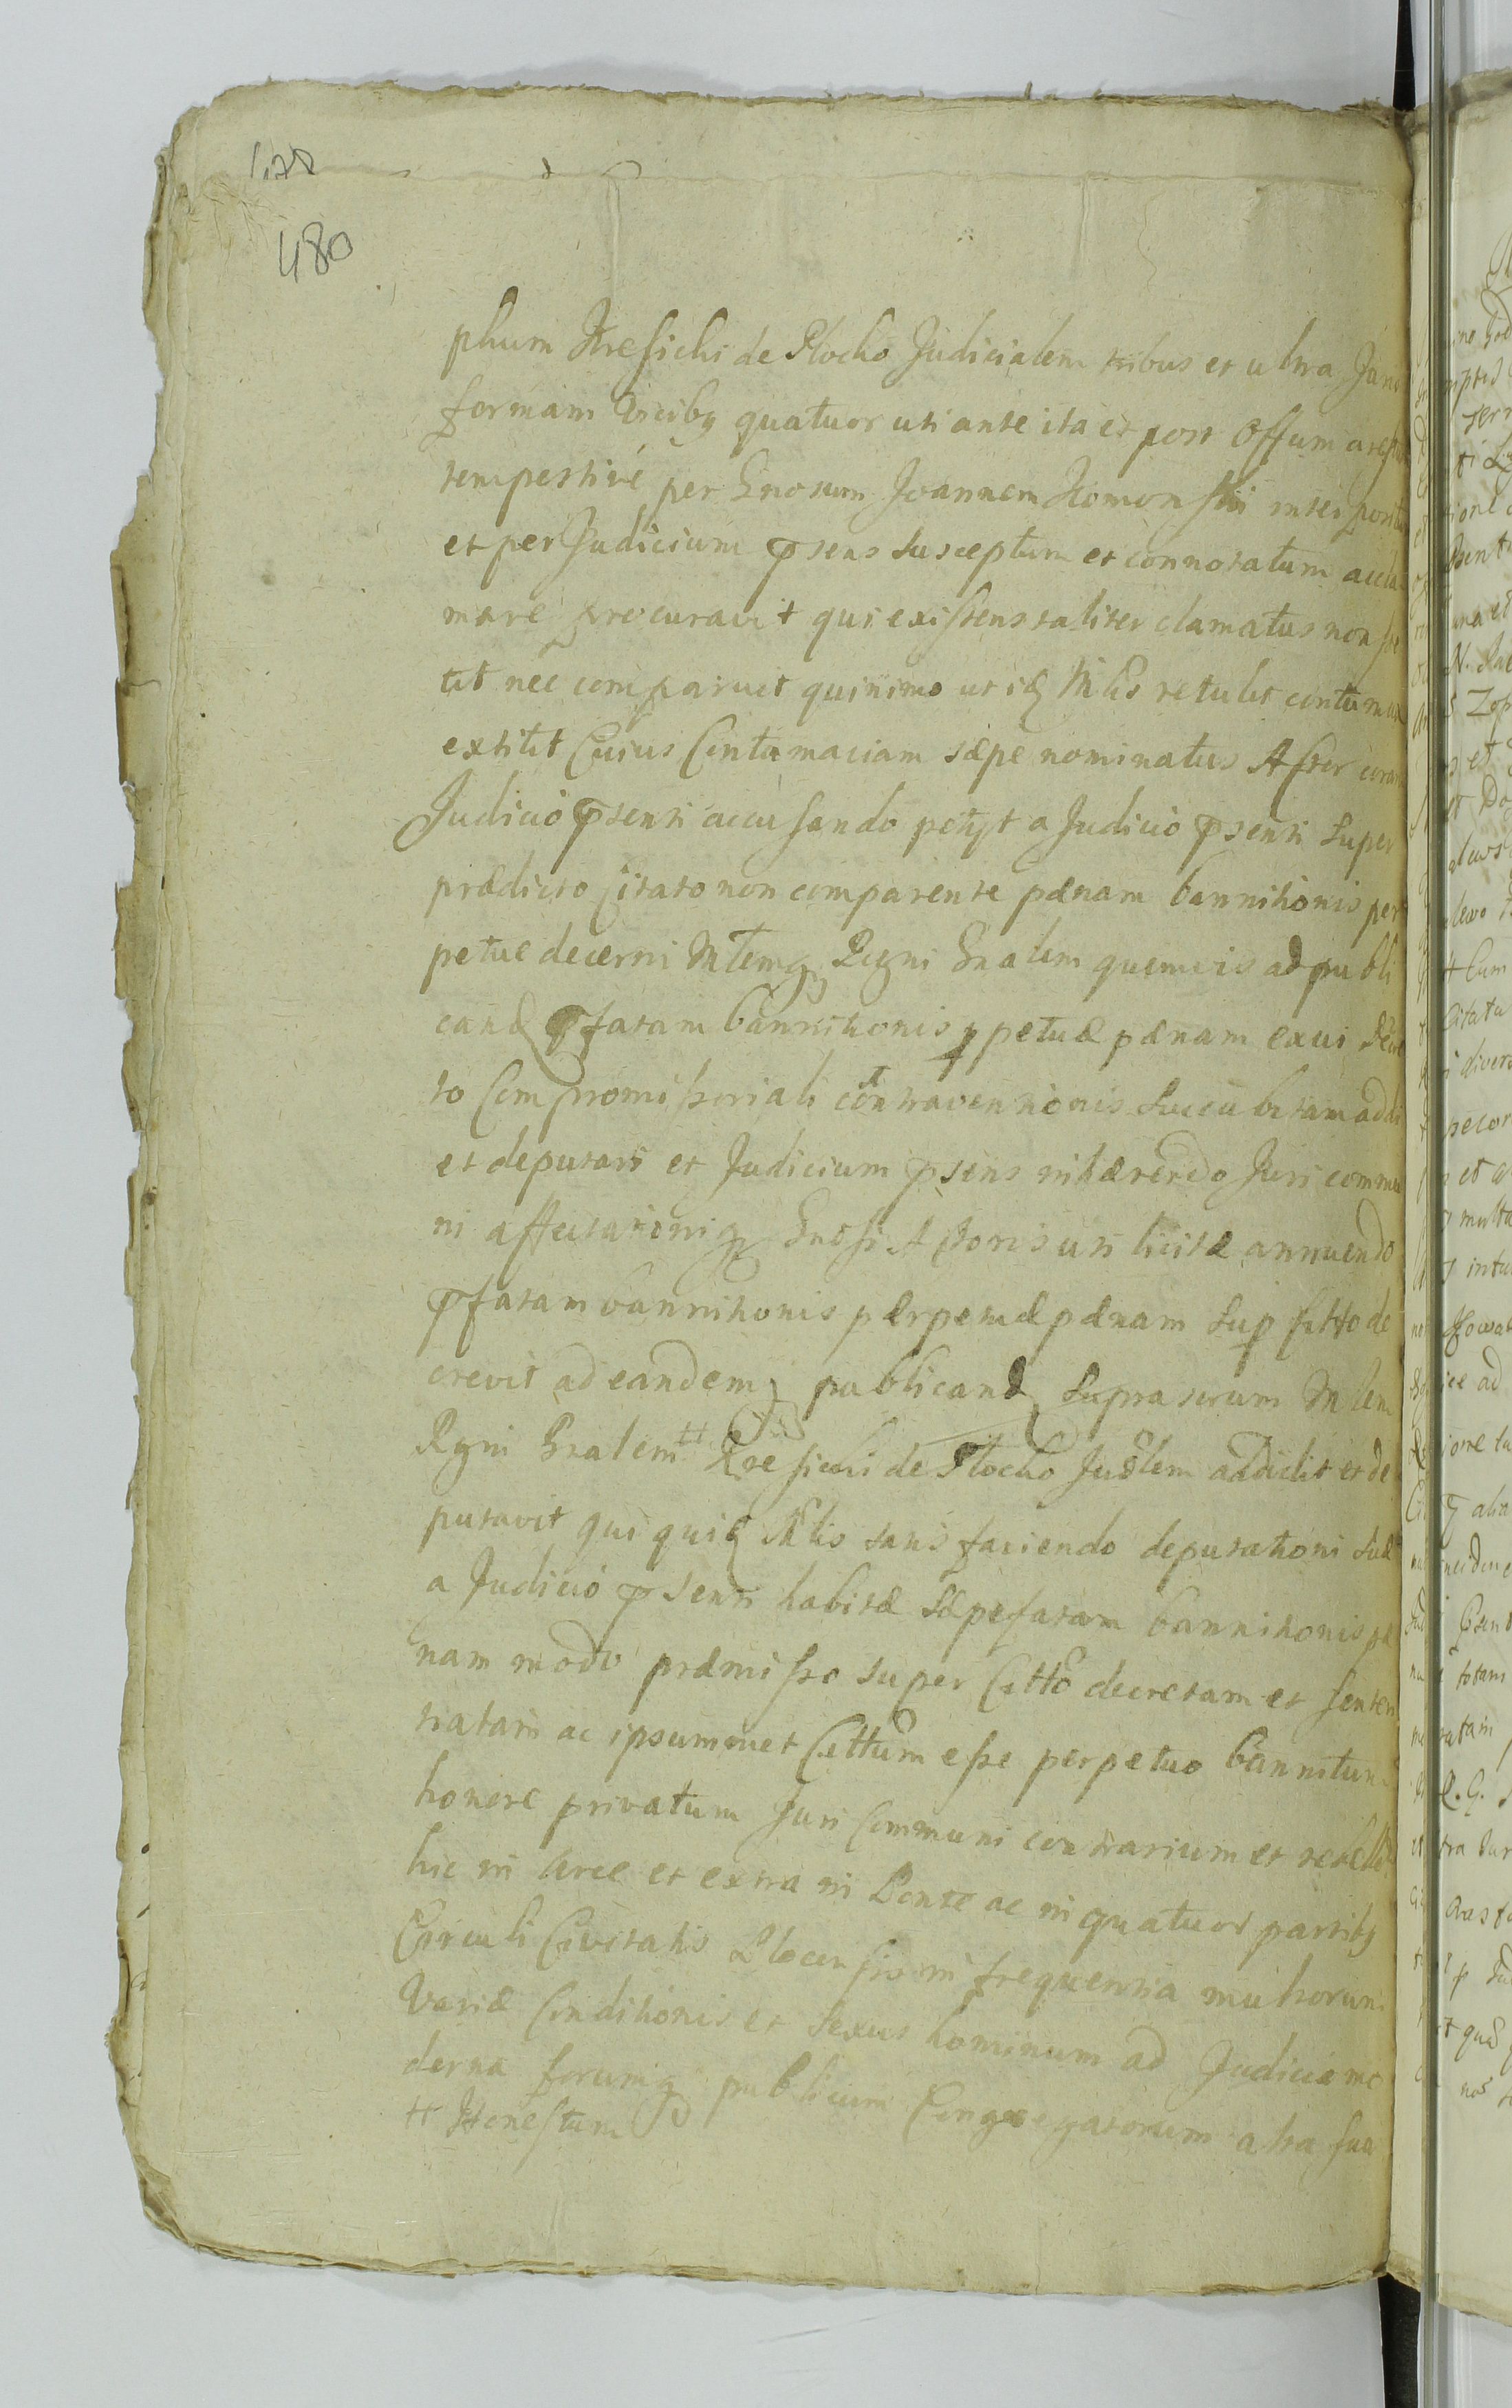 480
phum Kresicki de Plocko Judicialem tribus et ultra Jam
formam vicibq quatuor uti ante ita et post Offum
tempestivé per Gnosum Joannem interpositu
et per Judicium psens susceptum et connotatum accla
mare procuravit qui existens taliter clamatus non ste
tit nec comparuit quinimo ut idq Mlis retulit contumax
extitit Cuius Contumaciam sæpe nominatus Actor coram
Judicio psenti accusando petyt a Judicio psenti super
prædicto Citato non comparente pænam bannitionis per
petuæ decerni Mlemq Regni Gnalem quemvis ad publi
cand pfatam bannitionis ppetuæ pænam exvi decre
to Compromissoriali contraventionis succubitam addi
et deputari et Judicium psens inhærendo Juri commu
ni affectationiq Gnosi Actoris uti licitæ annuendo
pfatam bannitionis pærpetuæ pænam sup Citto de
crevit ad eandemq publicand supra scrum Mlem
Regni Gnalem ++ Kresicki de Plocko Judlem addidit et de
putavit qui quid Mlis satis faciendo deputationi suæ
a Judicio psenti habitæ sæpefatam bannitionis pæ
nam modo præmisso super Citto decretam et senten
tiatam ac ipsummet Cittum esse perpetuo bannitum
honore privatum Juri Communi contrarium et rebelle
hic in Arce et extra in Ponte ac in quatuor partibq
Circuli Civitatis Plocensis in frequentia multorum
Variæ Conditionis et Sexus hominum ad Judicia mo
derna forumq publicum Congregatorum alta sua
++ Honestum